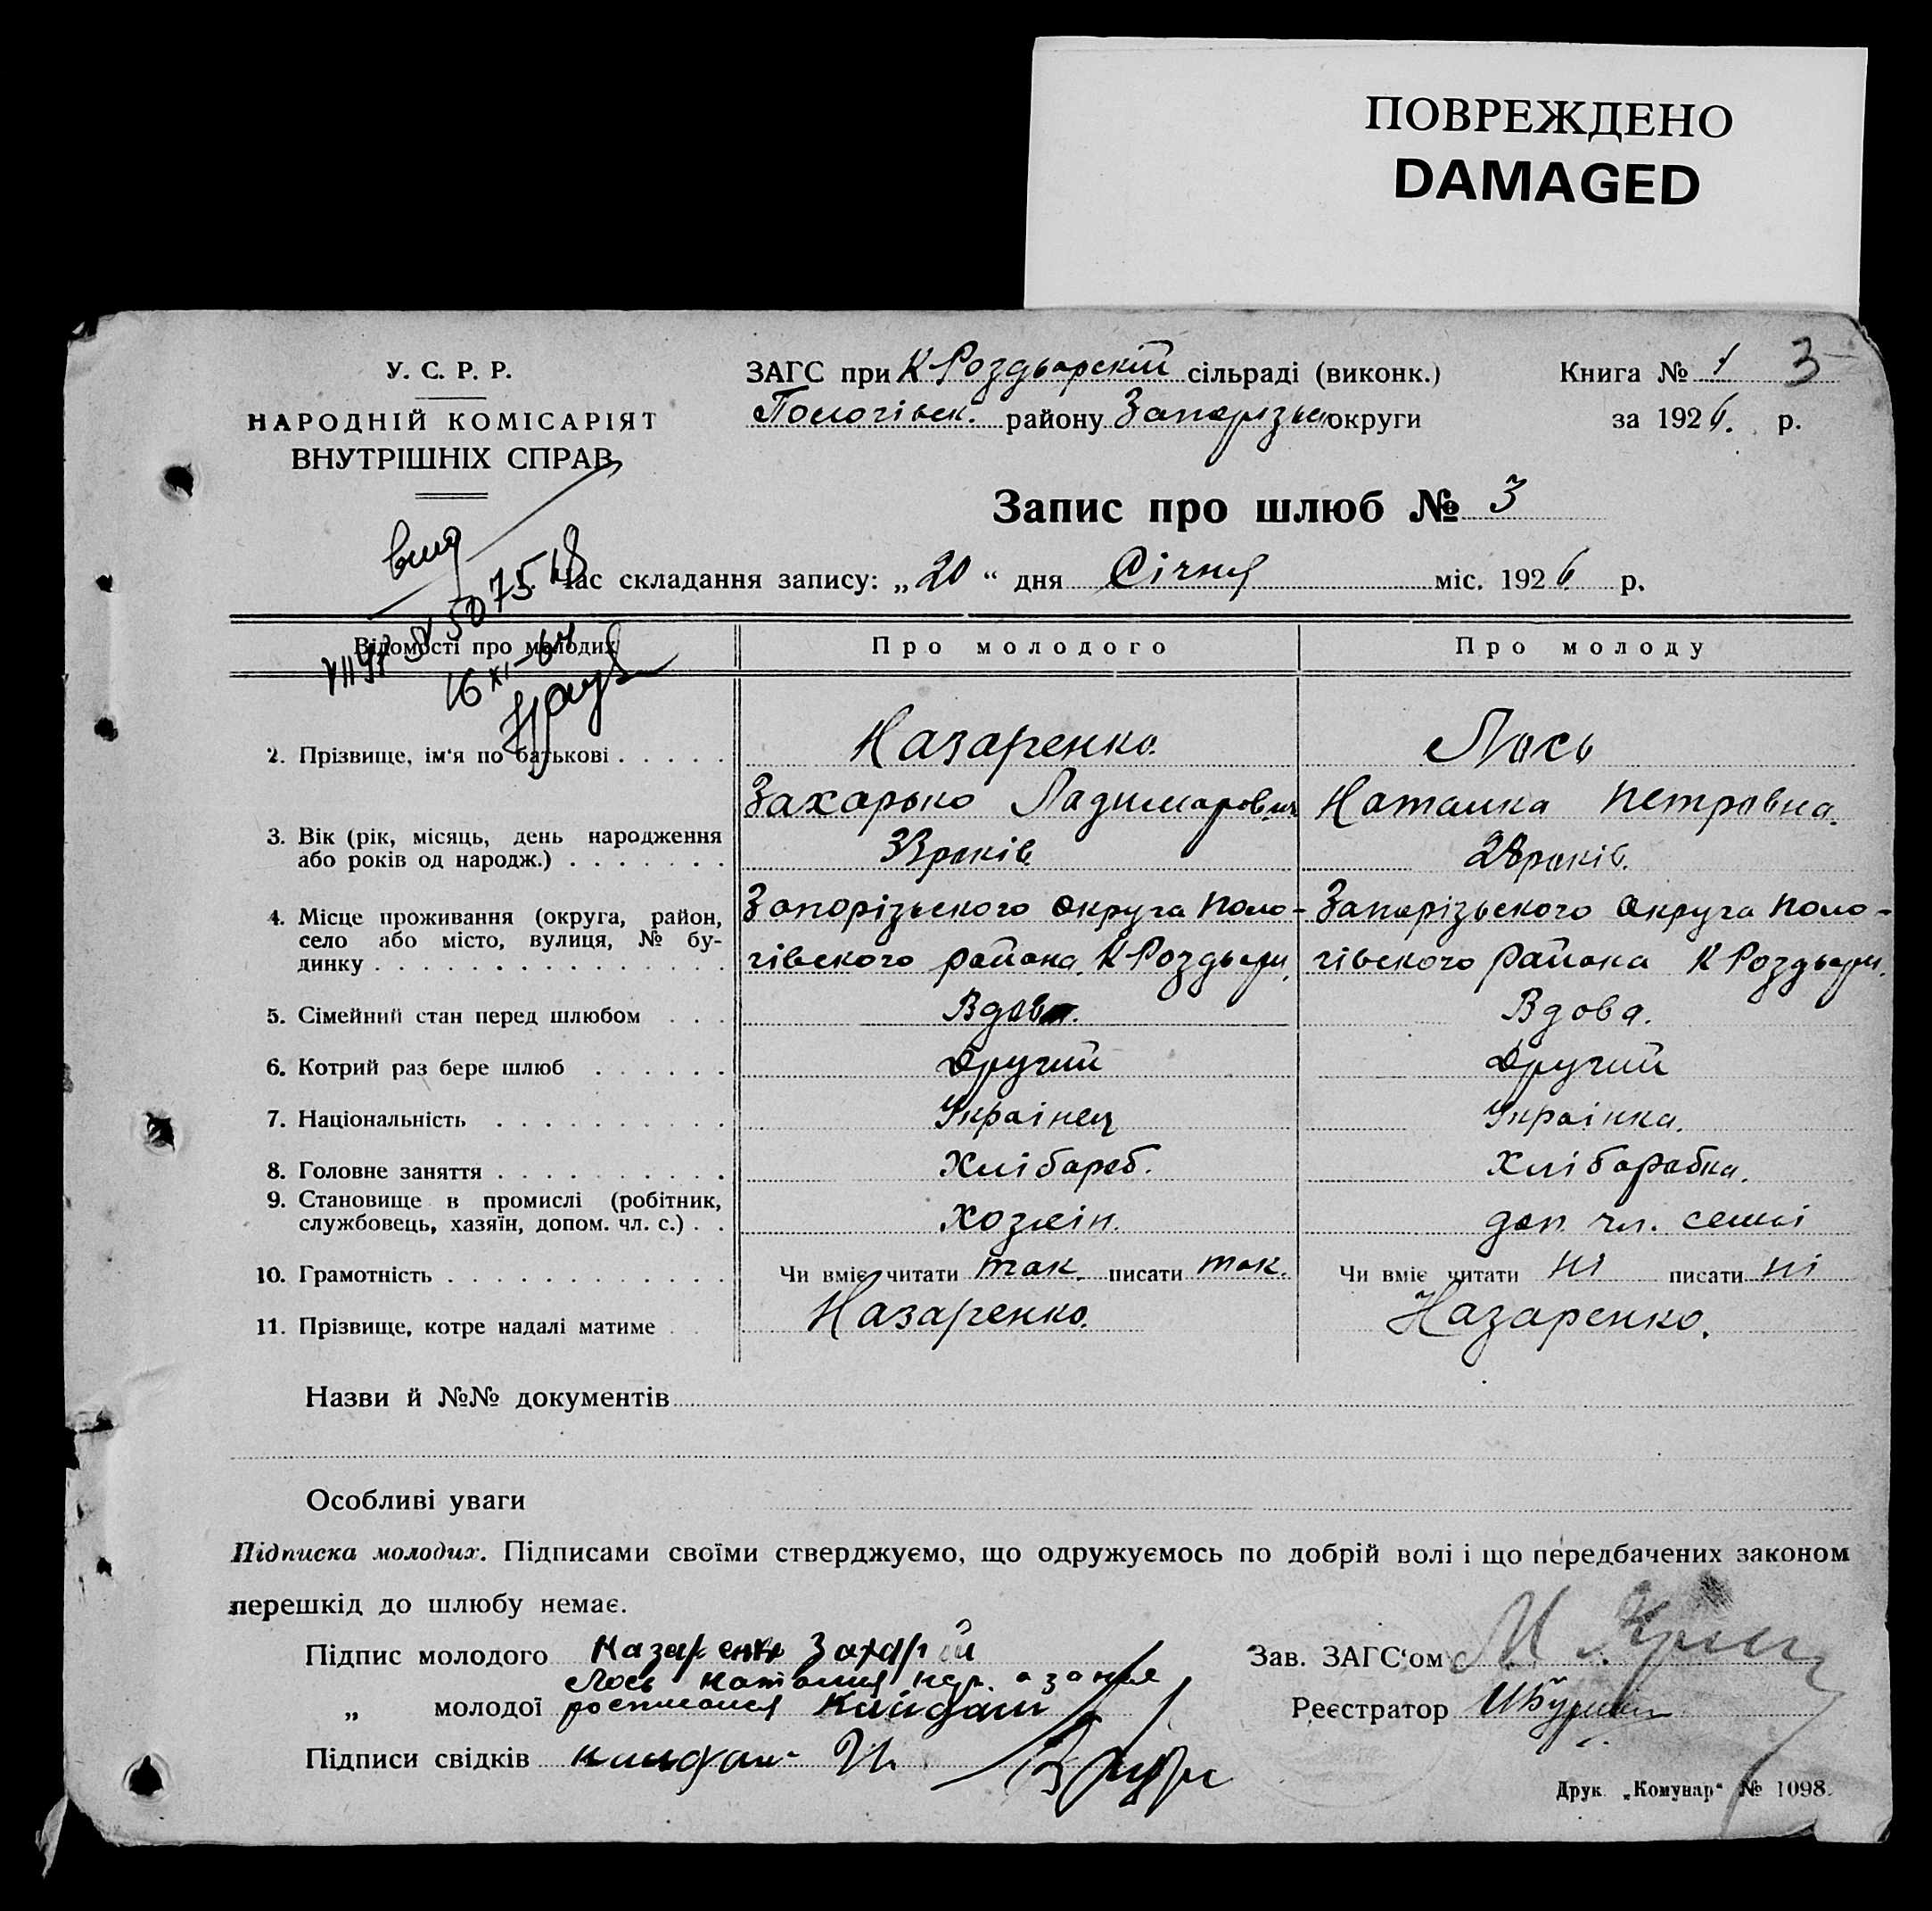 ПОВРЕЖДЕНО
DAMAGED
У. С. Р. Р.
НАРОДНІЙ КОМІСАРІЯТ
ВНУТРІШНІХ СПРАВ
ЗАГС при К Роздорскій сільраді (виконк.)
Пологівск. району Запорізьк округи
Книга № 1 3
за 1926. р.
Запис про шлюб № 3
Час складання запису: „20“ дня Січня міс. 1926 р.
507518
16 XI-64
Відомості про молодих
Про молодого
Про молоду
2. Прізвище, ім‘я по батькові
Назаренко.
Лось
Захарько
Наталка Петровна.
3. Вік (рік, місяць, день народження
або років од народж.)
33 років.
28 років.
4. Місце проживання (округа, район,
село або місто, вулиця, № бу-
динку
Запорізьского округа Поло-
гівского района. К Роздори,
Запорізьского округа Поло-
гівского района К Роздори.
5. Сімейний стан перед шлюбом
Вдов
Вдова.
6. Котрий раз бере шлюб
Другий
Другий
7. Національність
Українец
Українка.
8. Головне заняття
Хлібороб.
Хліборобка.
9. Становище в промислі (робітник,
службовець, хазяїн, допом. чл. с.)
Хозяін.
доп. чл. семьі
10. Грамотність
Чи вміє читати так. писати так.
Чи вміє читати ні писати ні
11. Прізвище, котре надалі матиме
Назаренко.
Назаренко.
Назви й №№ документів
Особливі уваги
Підписка молодих. Підписами своїми стверджуємо, що одружуємось по добрій волі і що передбачених законом
перешкід до шлюбу немає.
Підпис молодого Назаренко Захарій
Лось Наталия
„ молодої росписался
Підписи свідків
Зав. ЗАГС‘ом
Реєстратор
Друк. „Комунар“ № 1098.